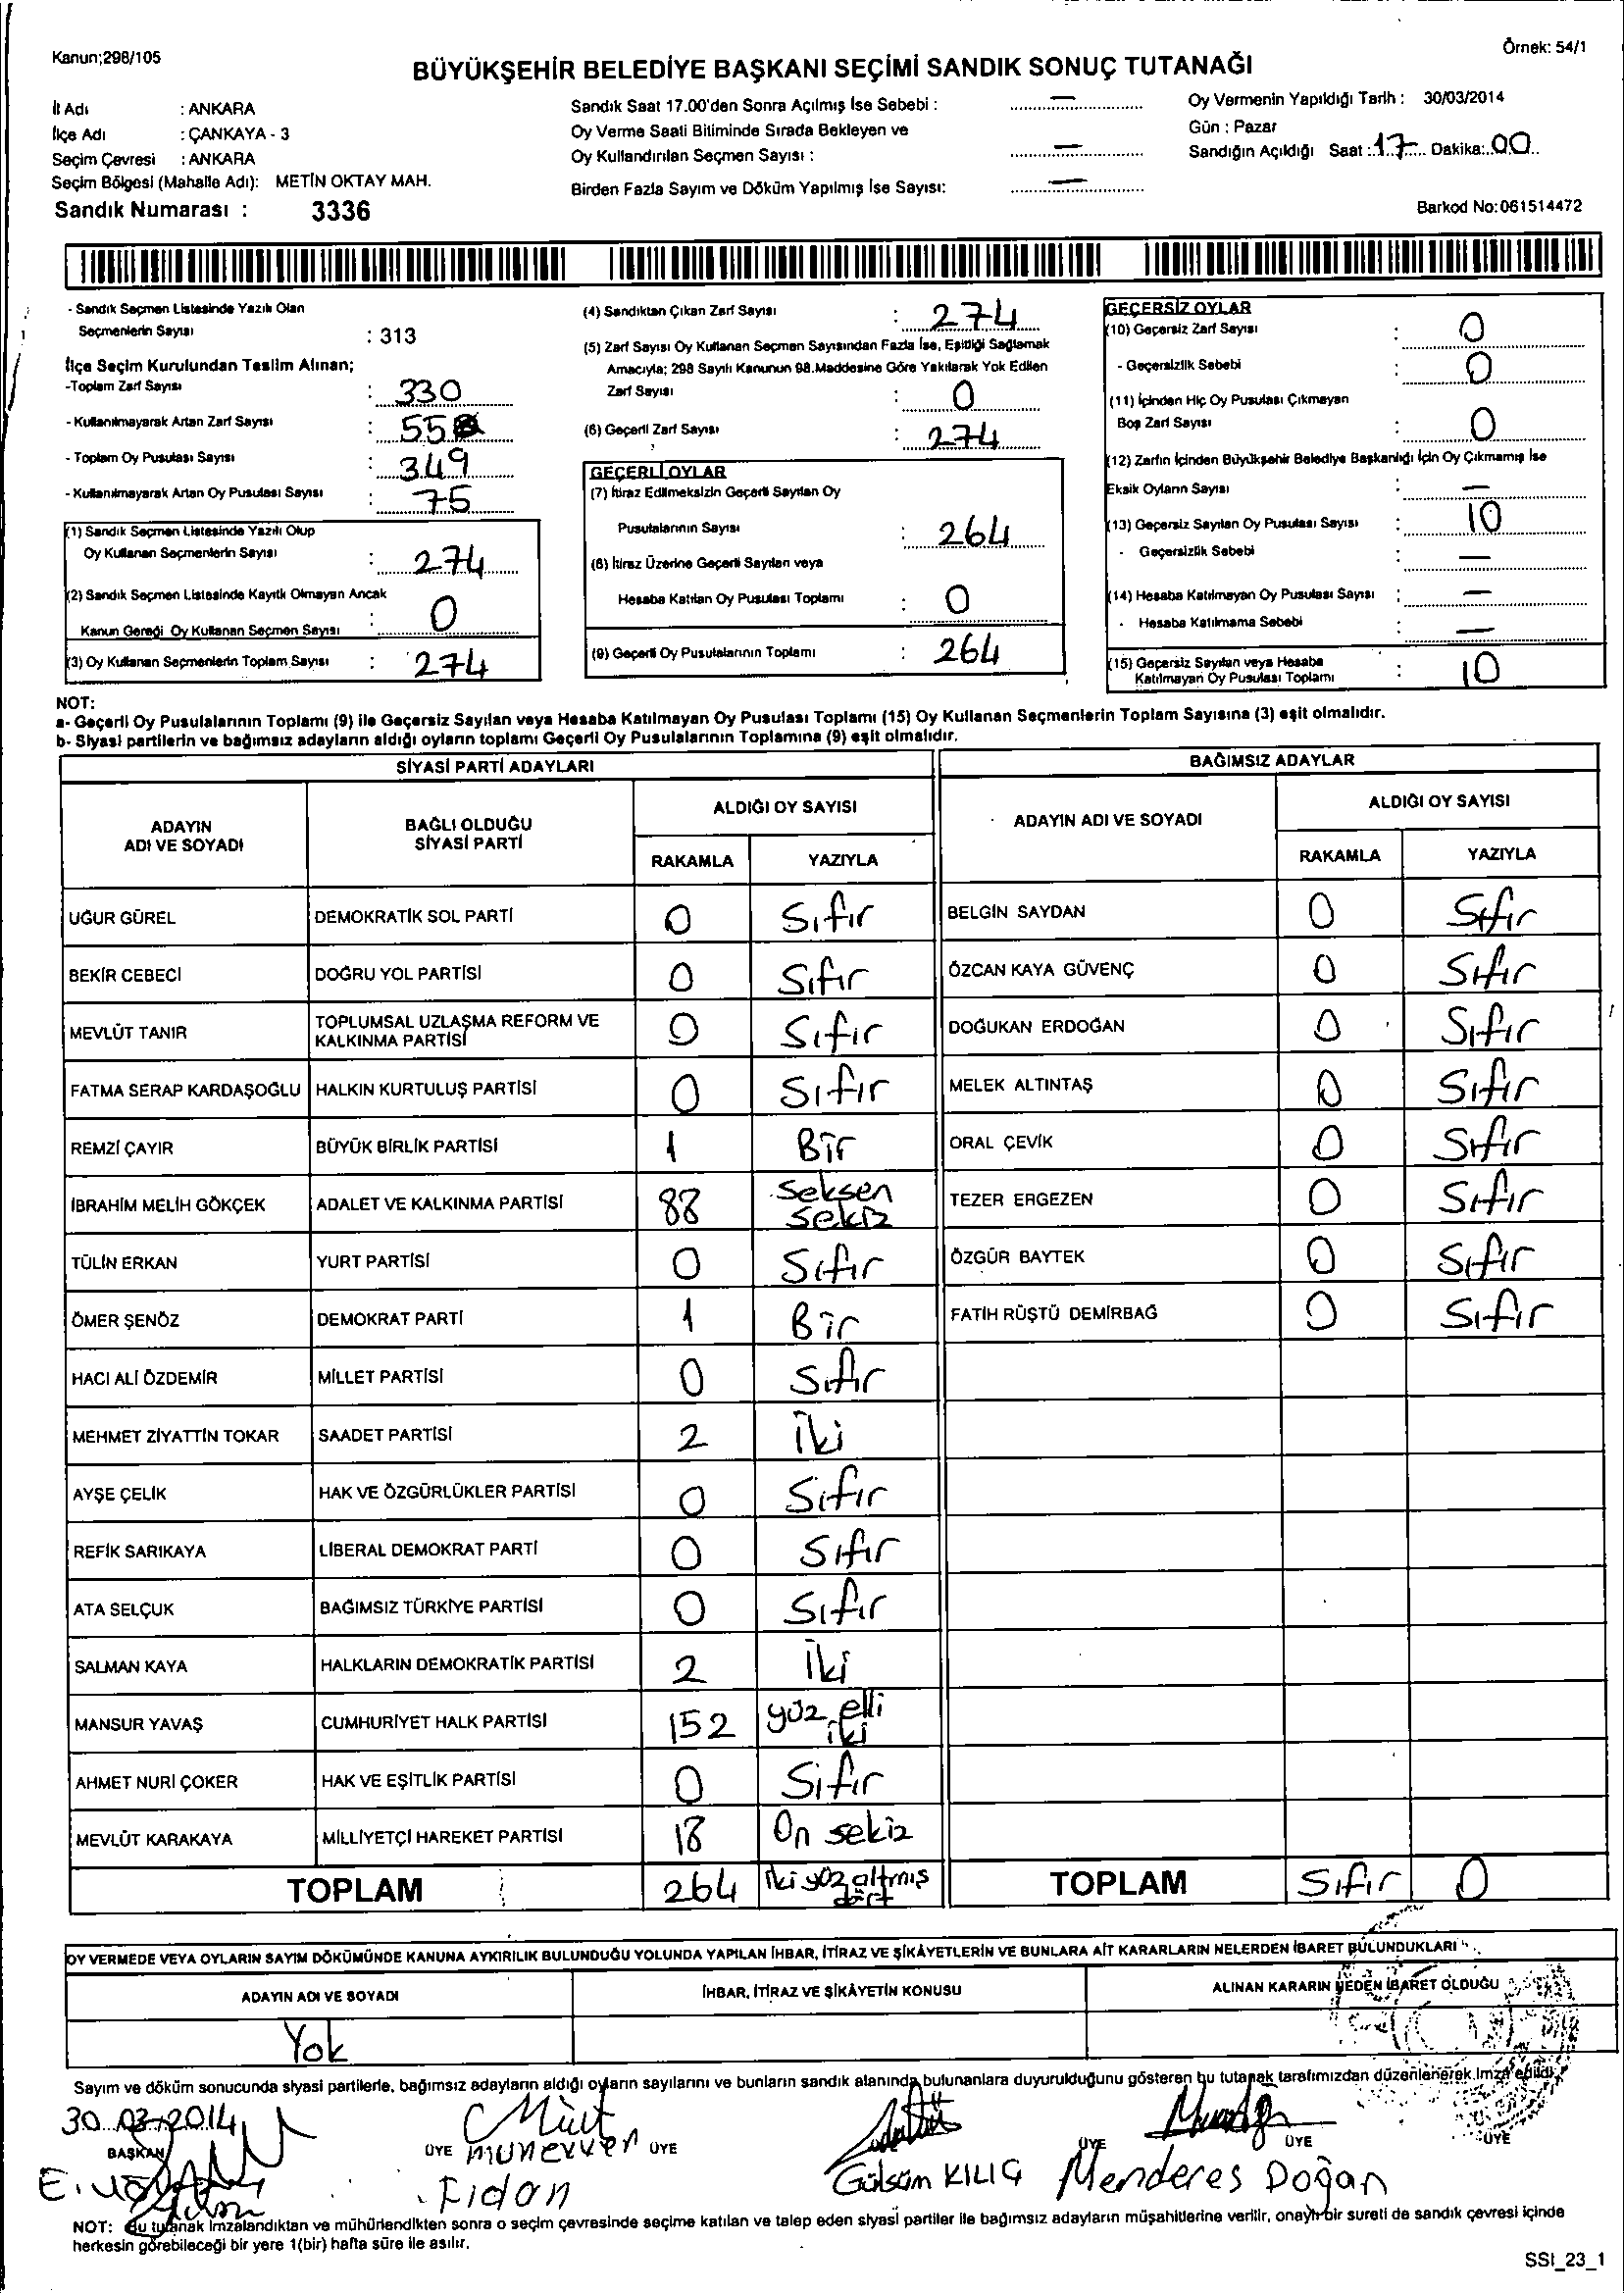 Kanun;298/105
Örnek: 54/1
BÜYÜKŞEHİR BELEDİYE BAŞKANI SEÇİMİ SANDIK SONUÇ TUTANAĞI
İl Adı : ANKARA
İlçe Adı : ÇANKAYA - 3
Seçim Çevresi : ANKARA
Seçim Bölgesi (Mahalle Adı): METİN OKTAY MAH.
Sandık Numarası : 3336
Sandık Saat 17.00'den Sonra Açılmış İse Sebebi : —
Oy Verme Saati Bitiminde Sırada Bekleyen ve
Oy Kullandırılan Seçmen Sayısı : —
Birden Fazla Sayım ve Döküm Yapılmış İse Sayısı: —
Oy Vermenin Yapıldığı Tarih : 30/03/2014
Gün : Pazar
Sandığın Açıldığı Saat : 17 Dakika: 00
Barkod No:061514472
- Sandık Seçmen Listesinde Yazılı Olan
Seçmenlerin Sayısı : 313
İlçe Seçim Kurulundan Teslim Alınan;
-Toplam Zarf Sayısı : 330
- Kullanılmayarak Artan Zarf Sayısı : 55
- Toplam Oy Pusulası Sayısı : 349
- Kullanılmayarak Artan Oy Pusulası Sayısı : 75
(1) Sandık Seçmen Listesinde Yazılı Olup
Oy Kullanan Seçmenlerin Sayısı : 274
(2) Sandık Seçmen Listesinde Kayıtlı Olmayan Ancak
Kanun Gereği Oy Kullanan Seçmen Sayısı : 0
(3) Oy Kullanan Seçmenlerin Toplam Sayısı : 274
(4) Sandıktan Çıkan Zarf Sayısı : 274
(5) Zarf Sayısı Oy Kullanan Seçmen Sayısından Fazla İse, Eşitliği Sağlamak
Amacıyla; 298 Sayılı Kanunun 98.Maddesine Göre Yakılarak Yok Edilen
Zarf Sayısı : 0
(6) Geçerli Zarf Sayısı : 274
GEÇERLİ OYLAR
(7) İtiraz Edilmeksizin Geçerli Sayılan Oy
Pusulalarının Sayısı : 264
(8) İtiraz Üzerine Geçerli Sayılan veya
Hesaba Katılan Oy Pusulası Toplamı : 0
(9) Geçerli Oy Pusulalarının Toplamı : 264
GEÇERSİZ OYLAR
(10) Geçersiz Zarf Sayısı : 0
- Geçersizlik Sebebi : 0
(11) İçinden Hiç Oy Pusulası Çıkmayan
Boş Zarf Sayısı : 0
(12) Zarfın İçinden Büyükşehir Belediye Başkanlığı İçin Oy Çıkmamış İse
Eksik Oyların Sayısı : —
(13) Geçersiz Sayılan Oy Pusulası Sayısı : 10
- Geçersizlik Sebebi : —
(14) Hesaba Katılmayan Oy Pusulası Sayısı : —
- Hesaba Katılmama Sebebi : —
(15) Geçersiz Sayılan veya Hesaba
Katılmayan Oy Pusulası Toplamı : 10
NOT:
a- Geçerli Oy Pusulalarının Toplamı (9) ile Geçersiz Sayılan veya Hesaba Katılmayan Oy Pusulası Toplamı (15) Oy Kullanan Seçmenlerin Toplam Sayısına (3) eşit olmalıdır.
b- Siyasi partilerin ve bağımsız adayların aldığı oyların toplamı Geçerli Oy Pusulalarının Toplamına (9) eşit olmalıdır.
SİYASİ PARTİ ADAYLARI
ADAYIN ADI VE SOYADI
BAĞLI OLDUĞU SİYASİ PARTİ
ALDIĞI OY SAYISI
RAKAMLA YAZIYLA
UĞUR GÜREL DEMOKRATİK SOL PARTİ 0 Sıfır
BEKİR CEBECİ DOĞRU YOL PARTİSİ 0 Sıfır
MEVLÜT TANIR TOPLUMSAL UZLAŞMA REFORM VE KALKINMA PARTİSİ 0 Sıfır
FATMA SERAP KARDAŞOĞLU HALKIN KURTULUŞ PARTİSİ 0 Sıfır
REMZİ ÇAYIR BÜYÜK BİRLİK PARTİSİ 1 Bir
İBRAHİM MELİH GÖKÇEK ADALET VE KALKINMA PARTİSİ 88 Seksen sekiz
TÜLİN ERKAN YURT PARTİSİ 0 Sıfır
ÖMER ŞENÖZ DEMOKRAT PARTİ 1 Bir
HACI ALİ ÖZDEMİR MİLLET PARTİSİ 0 Sıfır
MEHMET ZİYATTİN TOKAR SAADET PARTİSİ 2 İki
AYŞE ÇELİK HAK VE ÖZGÜRLÜKLER PARTİSİ 0 Sıfır
REFİK SARIKAYA LİBERAL DEMOKRAT PARTİ 0 Sıfır
ATA SELÇUK BAĞIMSIZ TÜRKİYE PARTİSİ 0 Sıfır
SALMAN KAYA HALKLARIN DEMOKRATİK PARTİSİ 2 İki
MANSUR YAVAŞ CUMHURİYET HALK PARTİSİ 152 yüz elli iki
AHMET NURİ ÇOKER HAK VE EŞİTLİK PARTİSİ 0 Sıfır
MEVLÜT KARAKAYA MİLLİYETÇİ HAREKET PARTİSİ 18 On sekiz
TOPLAM 264 İki yüz altmış dört
BAĞIMSIZ ADAYLAR
ADAYIN ADI VE SOYADI
ALDIĞI OY SAYISI
RAKAMLA YAZIYLA
BELGİN SAYDAN 0 Sıfır
ÖZCAN KAYA GÜVENÇ 0 Sıfır
DOĞUKAN ERDOĞAN 0 Sıfır
MELEK ALTINTAŞ 0 Sıfır
ORAL ÇEVİK 0 Sıfır
TEZER ERGEZEN 0 Sıfır
ÖZGÜR BAYTEK 0 Sıfır
FATİH RÜŞTÜ DEMİRBAĞ 0 Sıfır
TOPLAM Sıfır 0
OY VERMEDE VEYA OYLARIN SAYIM DÖKÜMÜNDE KANUNA AYKIRILIK BULUNDUĞU YOLUNDA YAPILAN İHBAR, İTİRAZ VE ŞİKÂYETLERİN VE BUNLARA AİT KARARLARIN NELERDEN İBARET BULUNDUKLARI
ADAYIN ADI VE SOYADI İHBAR, İTİRAZ VE ŞİKÂYETİN KONUSU ALINAN KARARIN NEDEN İBARET OLDUĞU
Yok
Sayım ve döküm sonucunda siyasi partilerle, bağımsız adayların aldığı oyların sayılarını ve bunların sandık alanında bulunanlara duyurulduğunu gösteren bu tutanak tarafımızdan düzenlenerek imza edildi.
30.03.2014
BAŞKAN ÜYE ÜYE ÜYE ÜYE ÜYE
münevver Fidan
Gülsüm KILIÇ
Menderes Doğan
NOT: Bu tutanak imzalandıktan ve mühürlendikten sonra o seçim çevresinde seçime katılan ve talep eden siyasi partiler ile bağımsız adayların müşahitlerine verilir, onaylı bir sureti de sandık çevresi içinde
herkesin görebileceği bir yere 1(bir) hafta süre ile asılır.
SSI_23_1